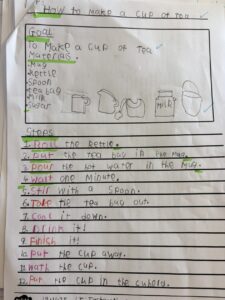 How to make a cup of tea
Goal
To Make a cup of tea
Materials.
Mug
Kettle
Spoon
tea bag
Milk
Sugar
Milk
Steps
1. Boil the kettle.
2. Put the tea bag in the mug.
3. Pour the hot water in the mug.
4. Wait one minute.
5. Stir with a spoon.
6. Take the tea bag out.
7. Cool it down.
8. Drink it!
9. Finish it!
10. Put the cup away.
11. Wash the cup.
12. Put the cup in the